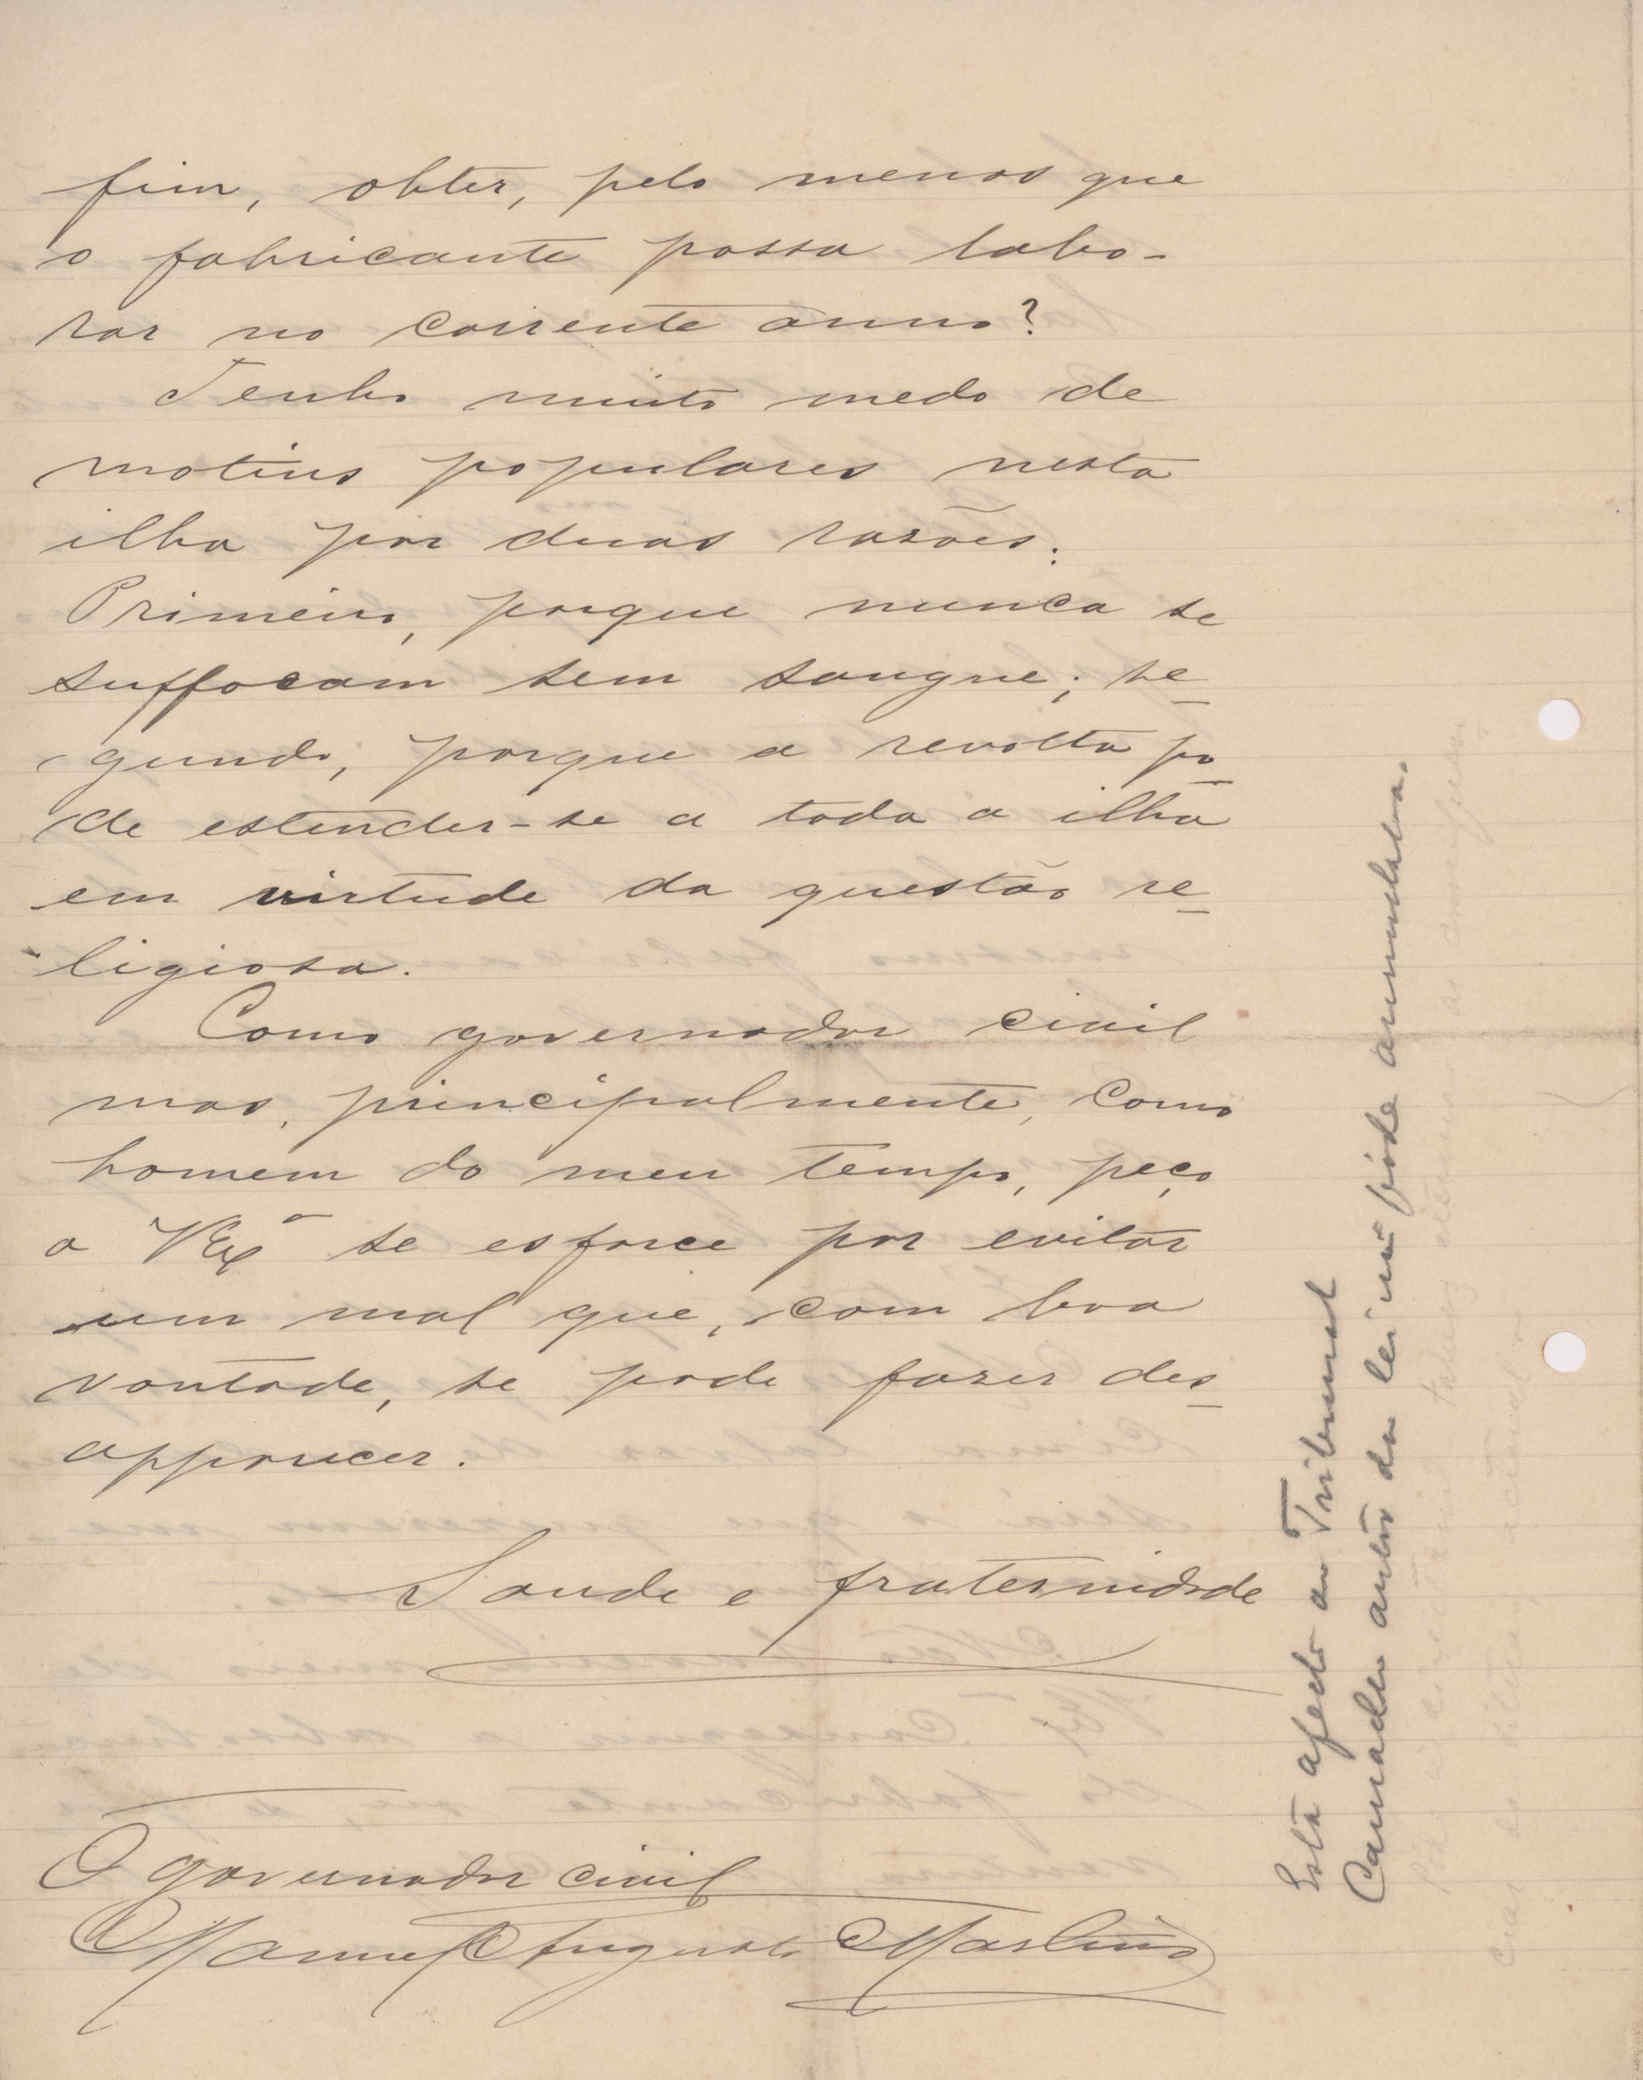 fim, obter, pelo menos que
o fabricante possa labo-
rar no corrente anno?
Tenho muito medo de
motins populares nesta
ilha por duas rasões.
Primeiro, porque nunca se
suffocam sem sangue; se-
gundo, porque a revolta po-
de estender-se a toda a ilha
em virtude da questão re-
ligiosa.
Como governador civil
mas, principalmente, como
homem do meu tempo, peço
a VExª se esforce por evitar
um mal que, com boa
vontade, se pode fazer des-
apparecer.
Saude e fraternidade
O governador civil
Manuel Augusto Martins
Está afecto ao Tribunal
Camadeu autor da lei não póde annullala.